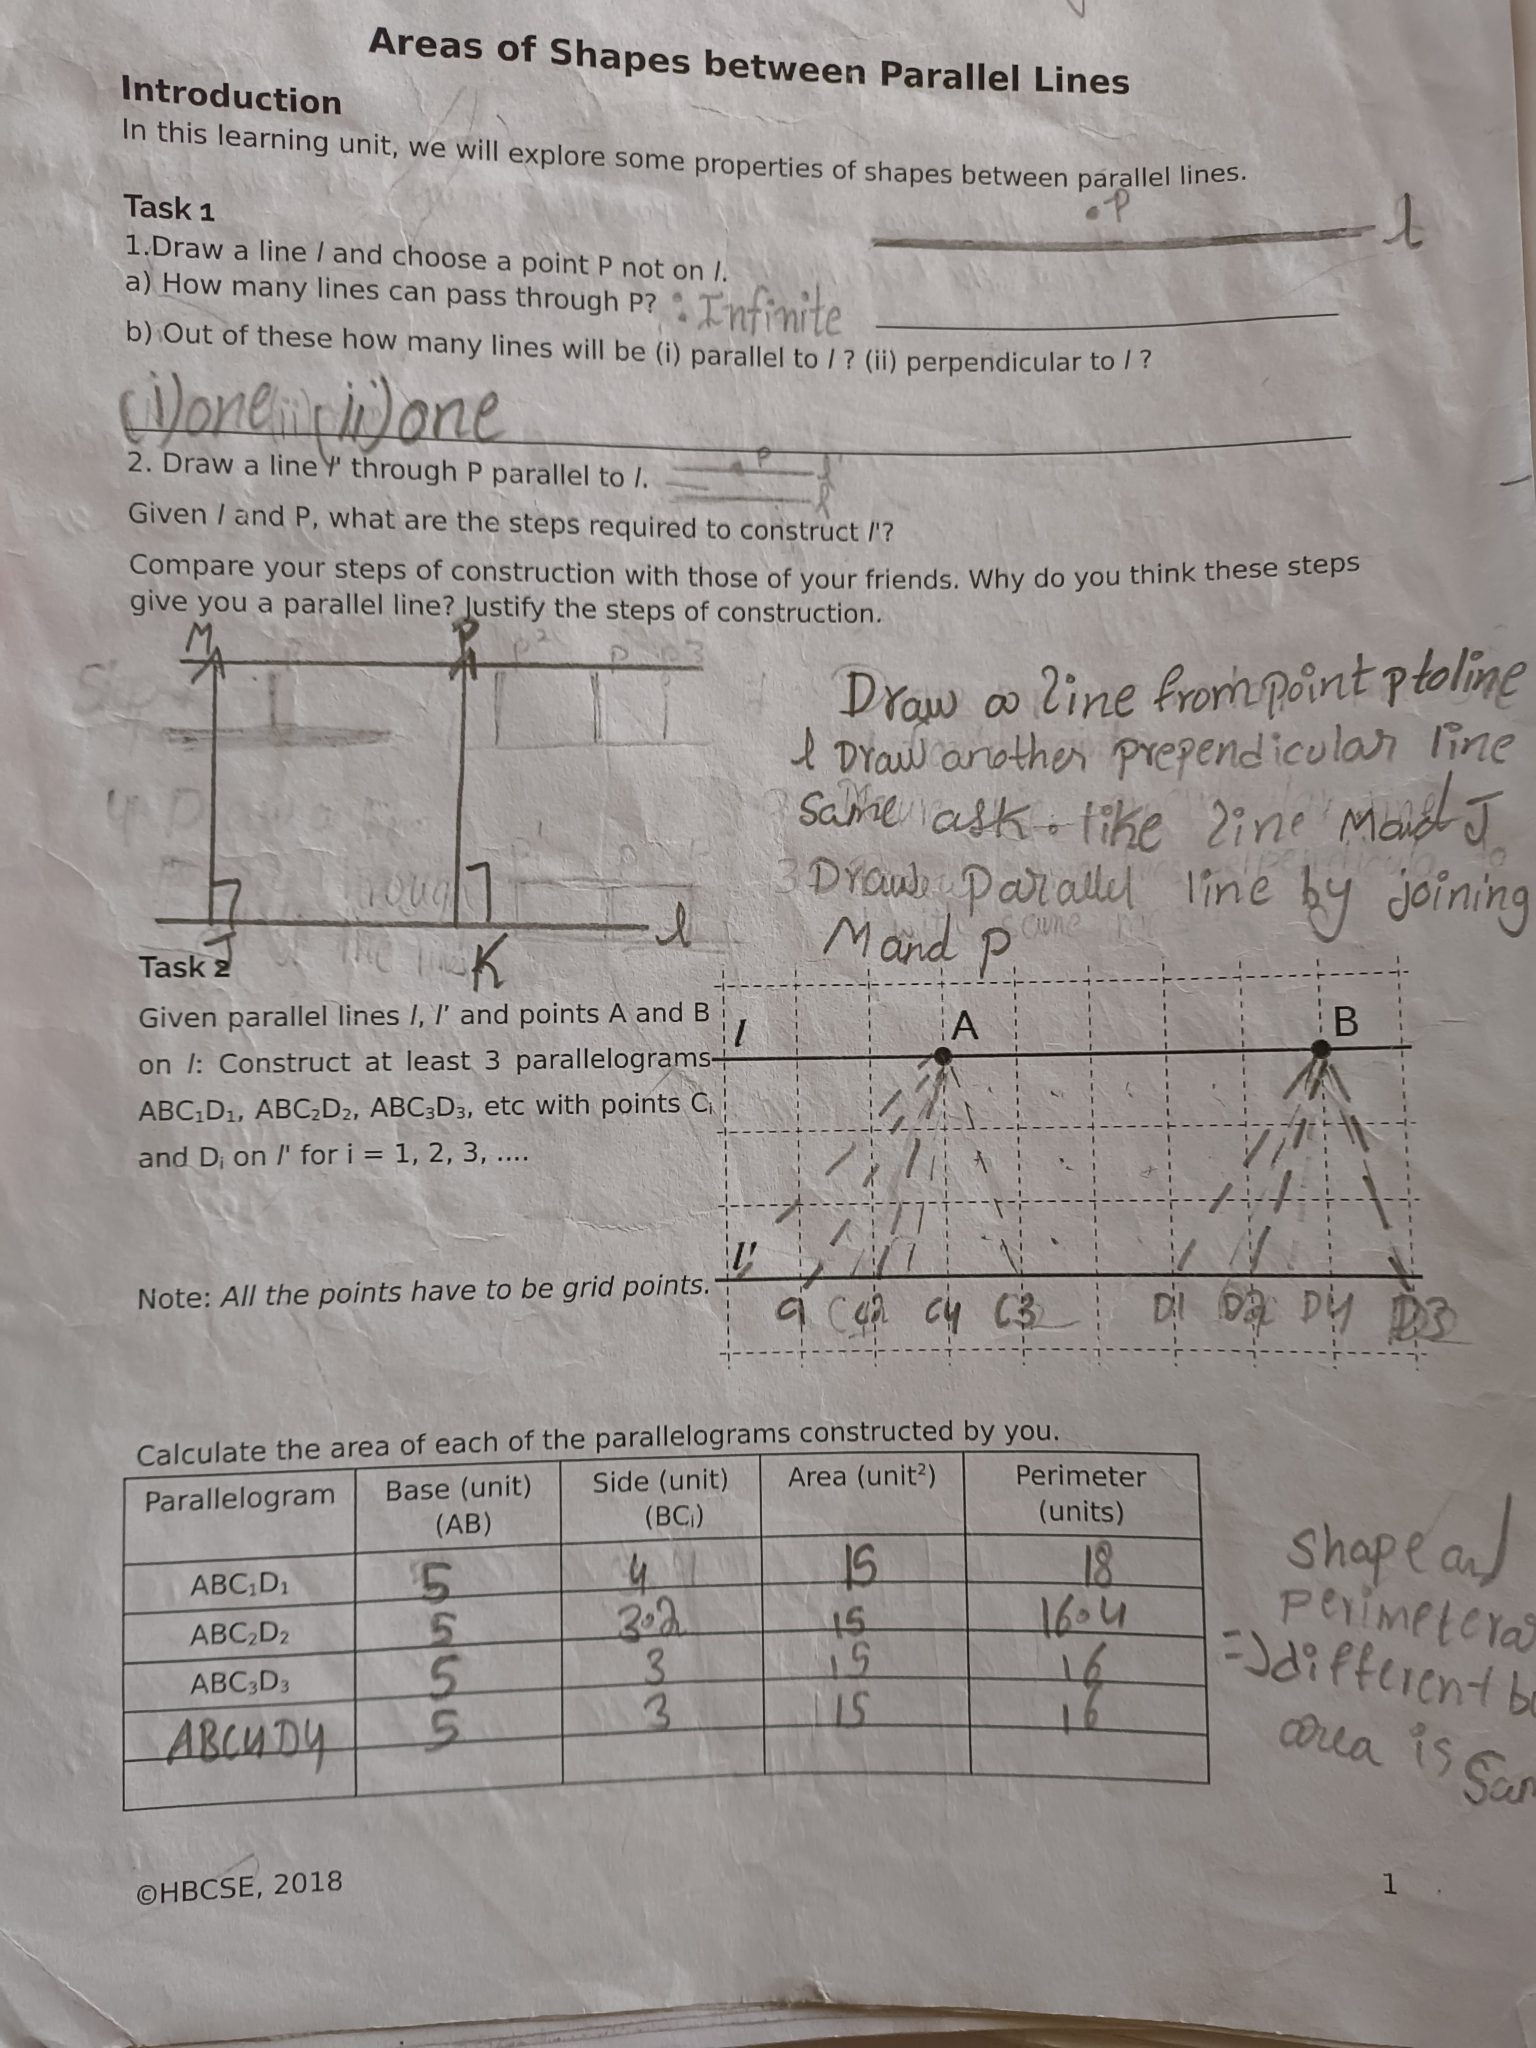 Areas of Shapes between Parallel Lines
Introduction
In this learning unit, we will explore some properties of shapes between parallel lines.
Task 1
.P
l
1.Draw a line l and choose a point P not on l.
a) How many lines can pass through P? : Infinite
b) Out of these how many lines will be (i) parallel to l ? (ii) perpendicular to l ?
(i) one (ii) one
2. Draw a line l' through P parallel to l.
P
l'
l
Given l and P, what are the steps required to construct l'?
Compare your steps of construction with those of your friends. Why do you think these steps
give you a parallel line? Justify the steps of construction.
M P
J K l
Draw a line from point p to line
l Draw another prependicular line
Same ask. like line M and J
3 Draw Parallel line by joining
M and p
Task 2
Given parallel lines l, l' and points A and B
on l: Construct at least 3 parallelograms
ABC₁D₁, ABC₂D₂, ABC₃D₃, etc with points Cᵢ
and Dᵢ on l' for i = 1, 2, 3, ....
Note: All the points have to be grid points.
l A B
l'
C1 C2 C4 C3 D1 D2 D4 D3
Calculate the area of each of the parallelograms constructed by you.
Parallelogram Base (unit) (AB) Side (unit) (BCᵢ) Area (unit²) Perimeter (units)
ABC₁D₁ 5 4 15 18
ABC₂D₂ 5 3.2 15 16.4
ABC₃D₃ 5 3 15 16
ABC4D4 5 3 15 16
Shape and
perimeter
=> different
area is
©HBCSE, 2018
1